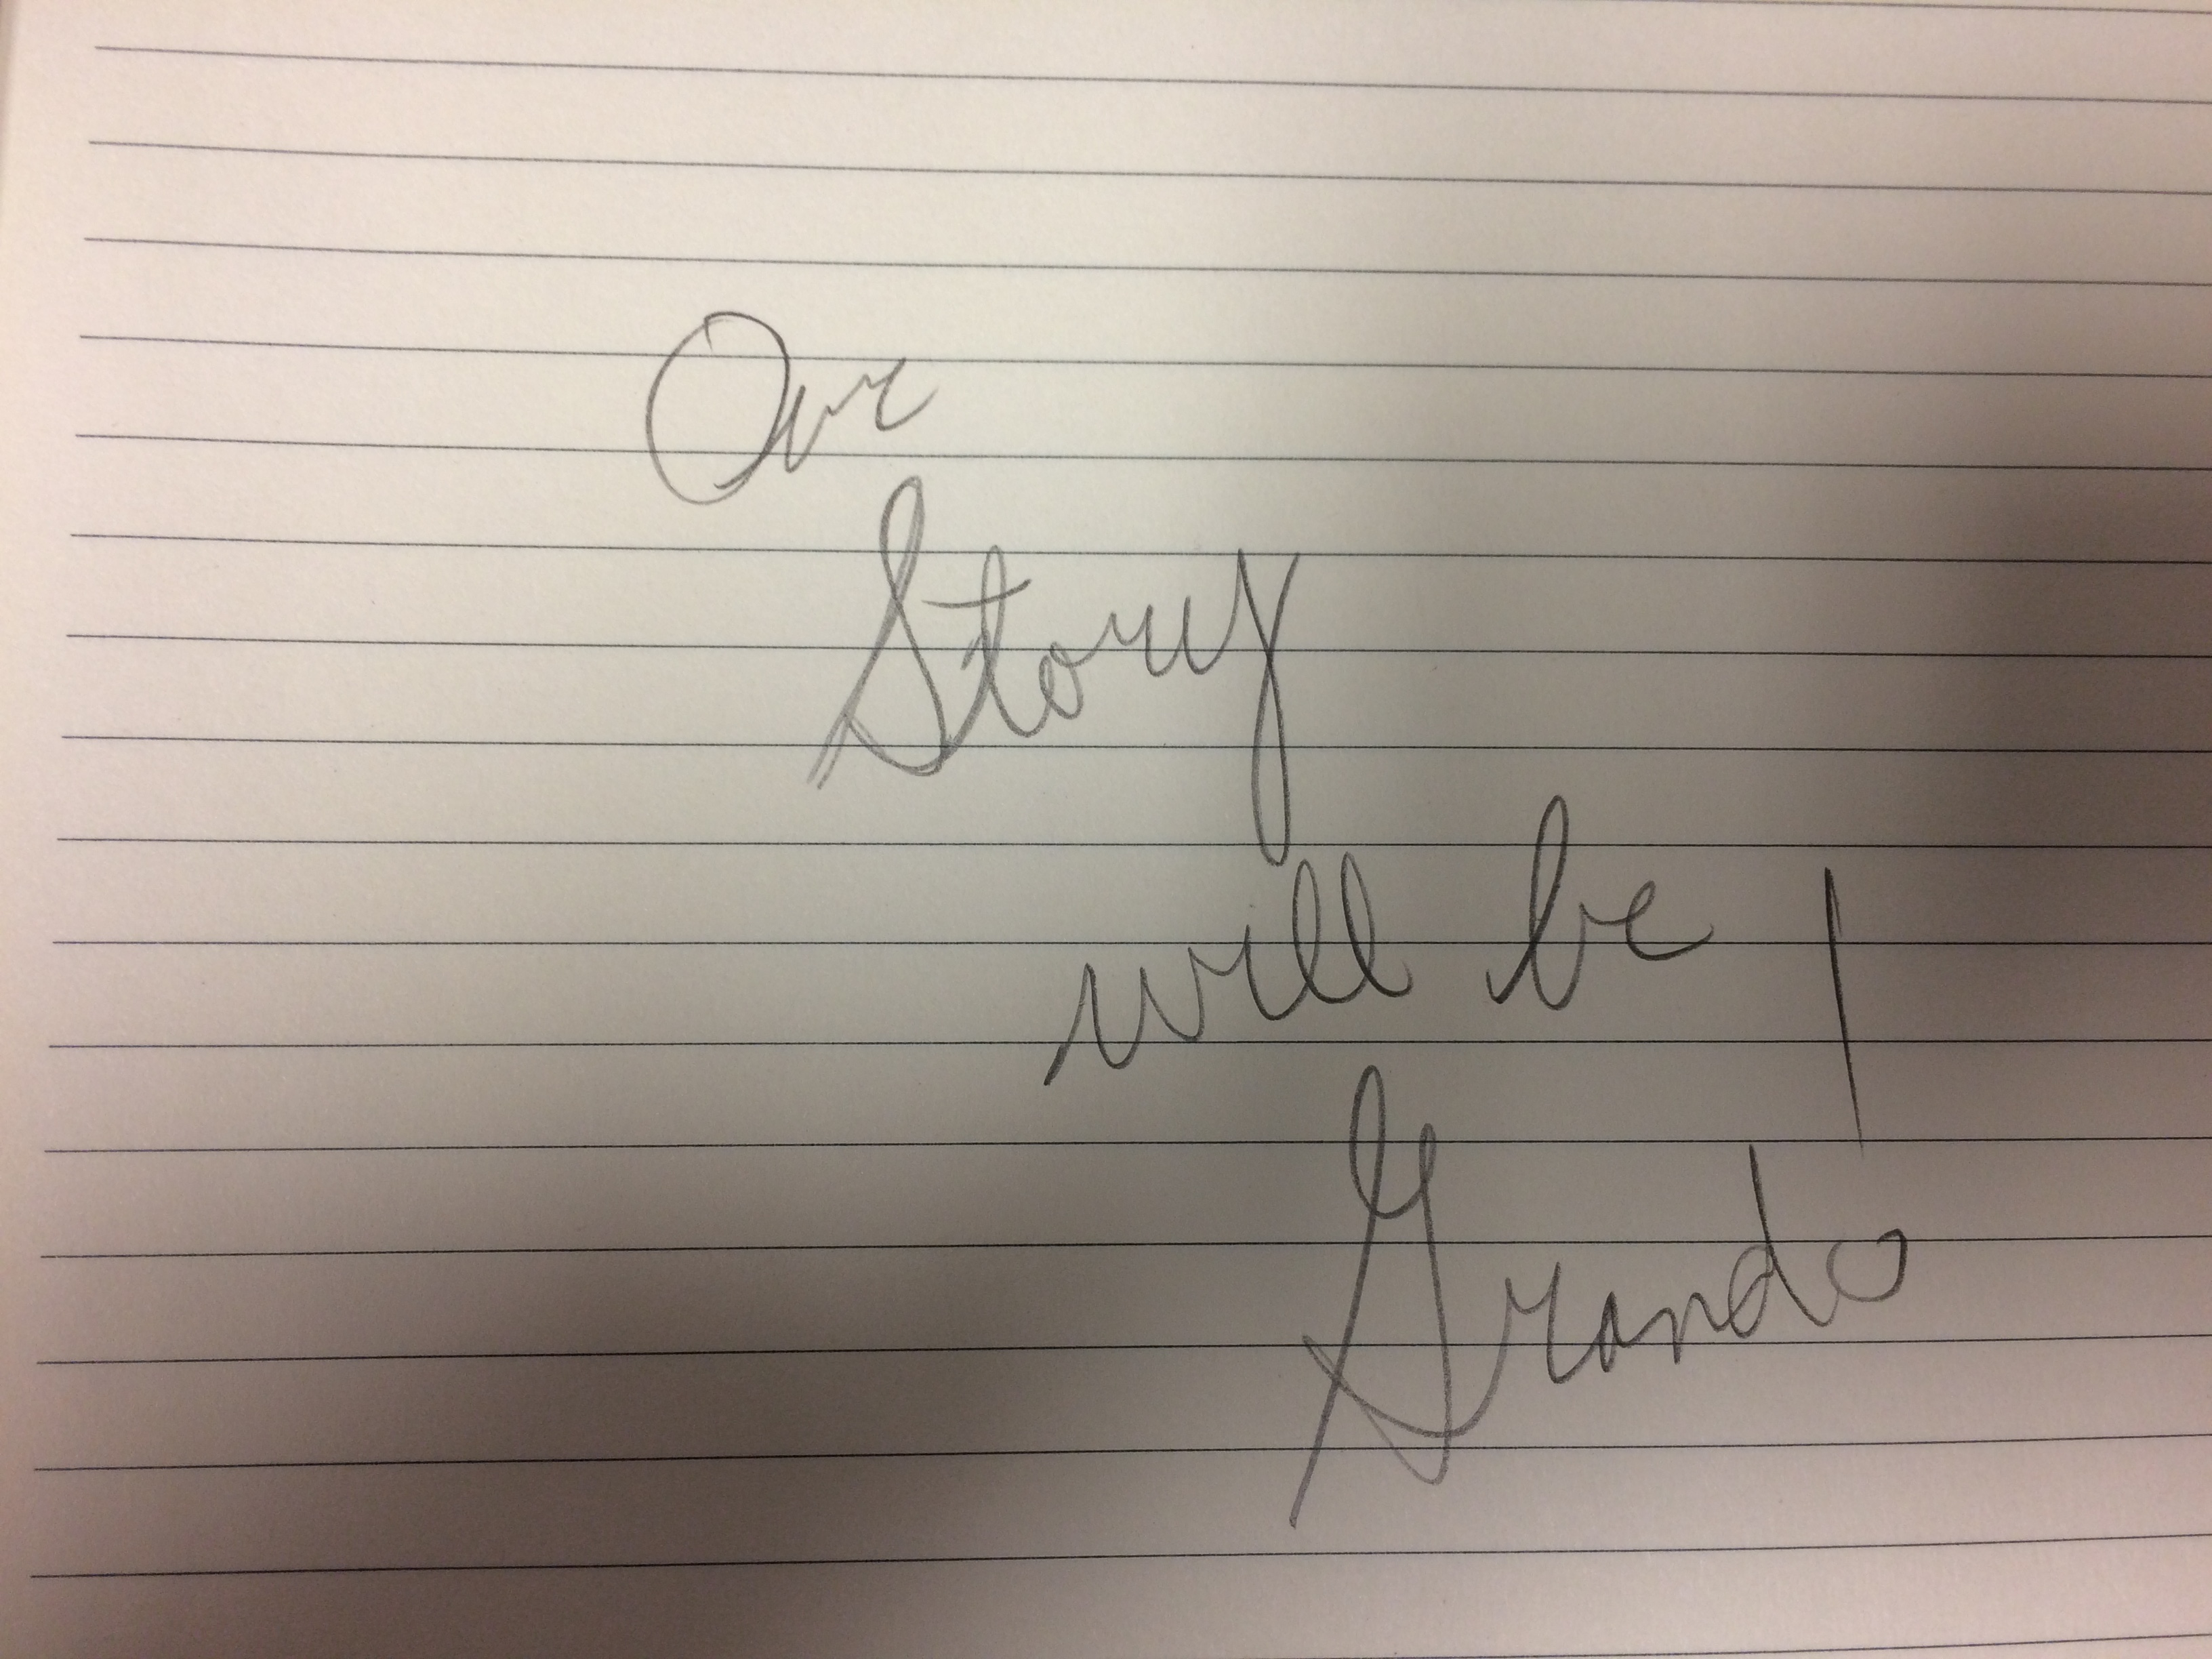 Our
Story
will be
Grand!